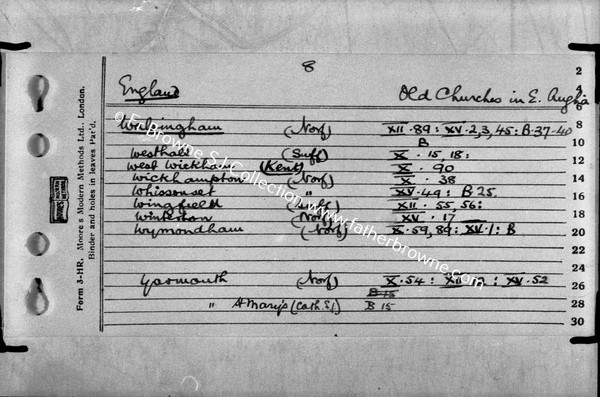 8
England Old Churches in E. Anglia
Walsingham (Norf) XII . 89 : XV . 2, 3, 45 : B . 37-40
B
Westhall (Suff) X . 15, 18 :
West Wickham (Kent) X . 90
Wickhampton (Norf) X . 38
Whissonset " XV . 49 : B 25
Wingfield (Suff) XII . 55, 56 :
(Norf) XV . 17
Wymondham (Norf) X . 59, 89 : XV . 1 : B
Yarmouth (Norf) X . 54 : XII : XV . 52
B 15
" St Mary's (Cath. S.) B 15
2
8
10
12
14
16
18
20
22
24
26
28
30
Form 3-HR. Moore's Modern Methods Ltd., London.
Binder and holes in leaves Pat'd.
Fr Browne S.J. Collection www.fatherbrowne.com